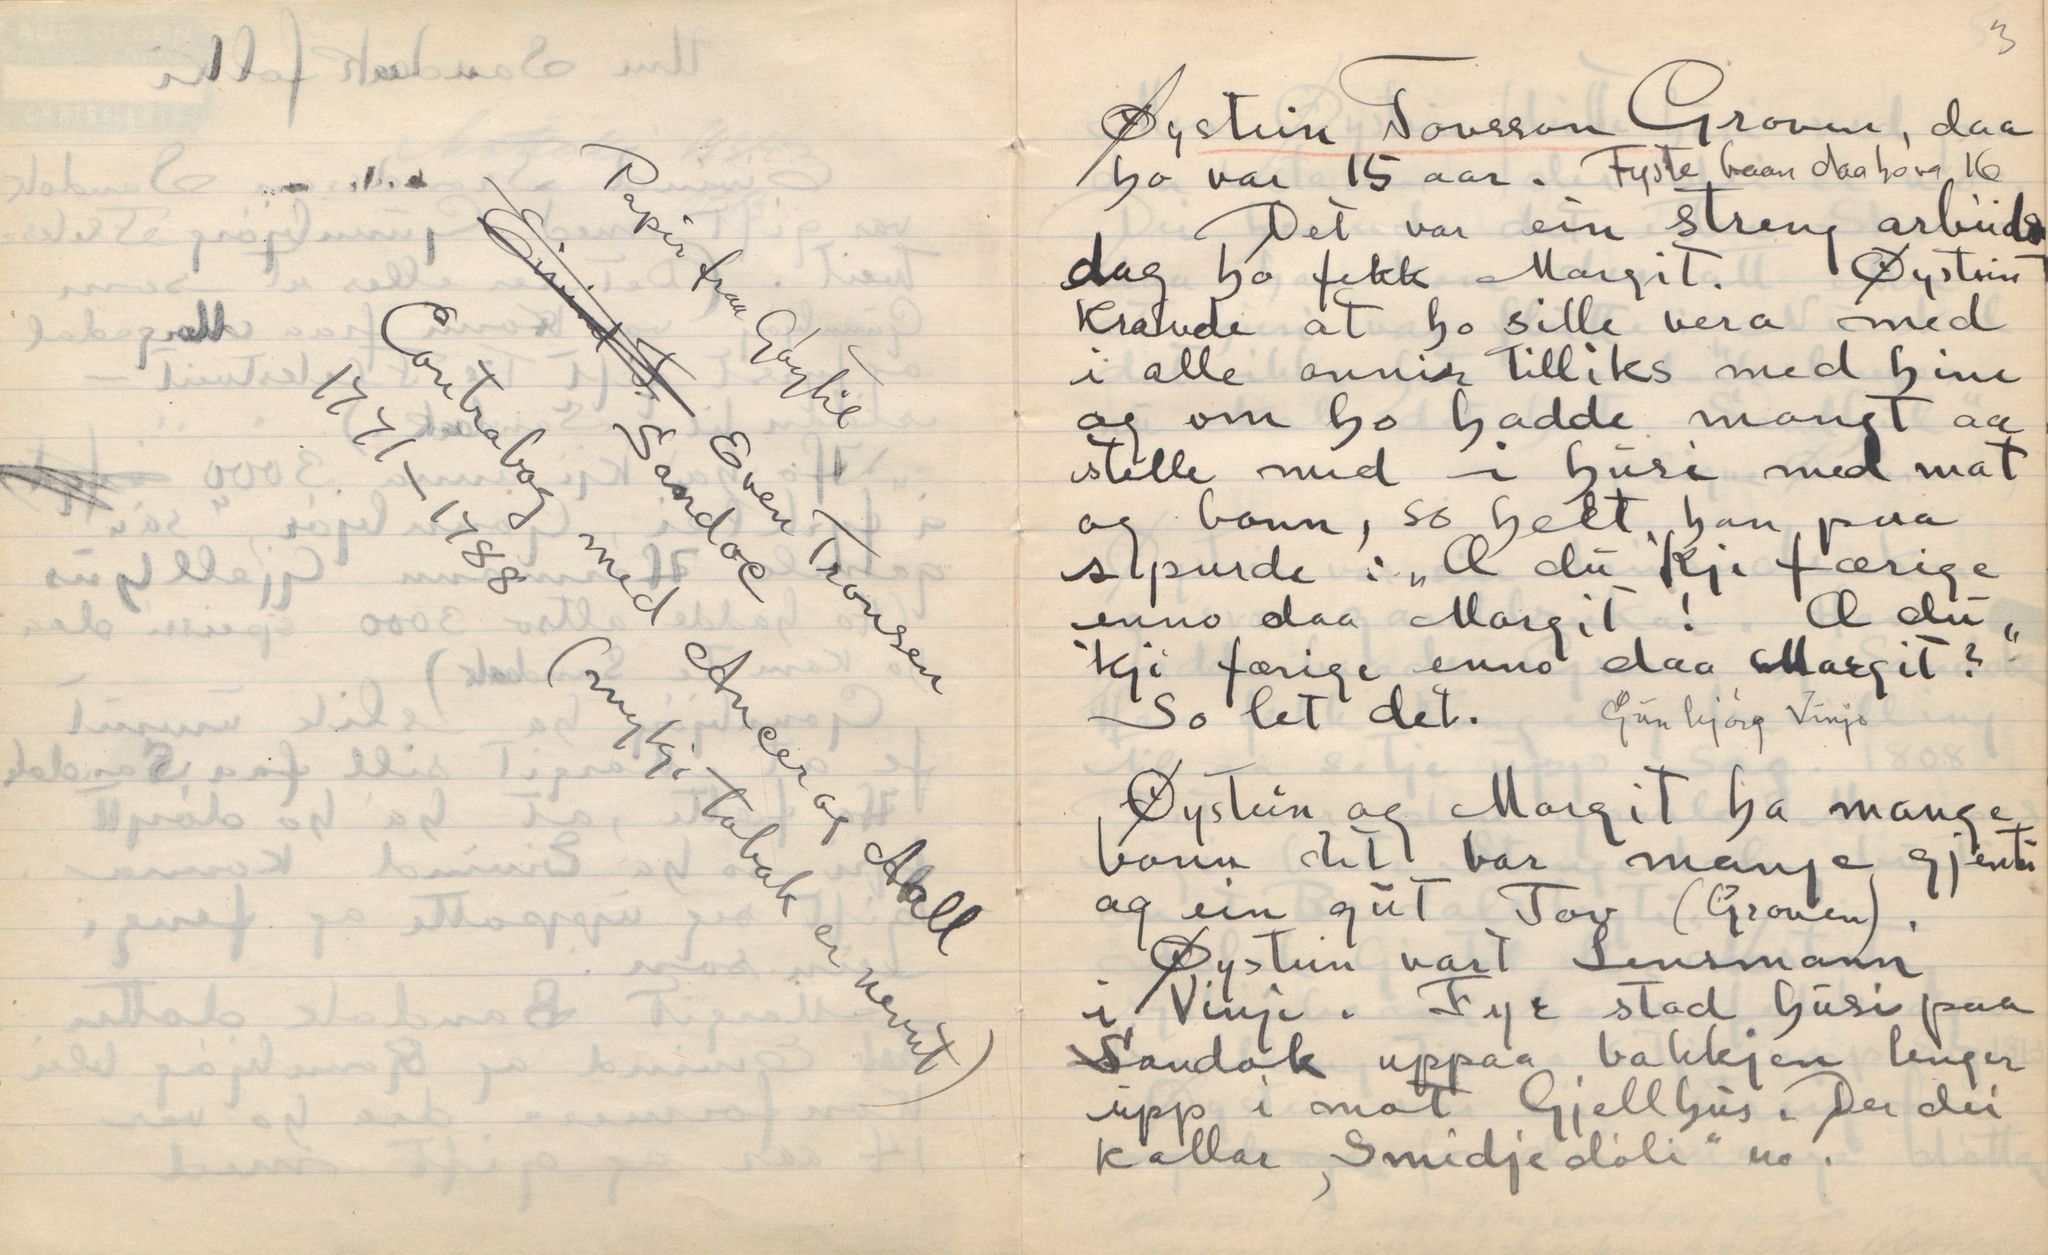 Papir fraa Gøytil
Eivind T. Even Tronsen
Sandoc
Contrabog med Ancer og Aall
1771-1788
(mykje tabak er nemnt)
3
Øystein Tovsson Groven, daa
ho var 15 aar. Fyste baan daa ho va 16
Det var ein streng arbeids
dag ho fekk Margit. Øystein
kravde at ho sille vera med
i alle onnir tilliks med hine
og om ho hadde mangt aa
stelle med i húsi med mat
og bonn, so helt han paa
spurde: „Æ du 'kji færige
enno daa Margit! Æ du
'kji færige enno daa Margit?"
So let det. Gúnbjørg Vinjo
Øystein og Margit ha mange
bonn det var manje gjentu
og ein gút Tov (Groven).
Øystein vart Lensmann
i Vinje. Fyr stod húsi paa
Sandok uppaa bakkjen lenger
úpp i mot Gjellhús. Der dei
kallar „Smidjedóli" no.